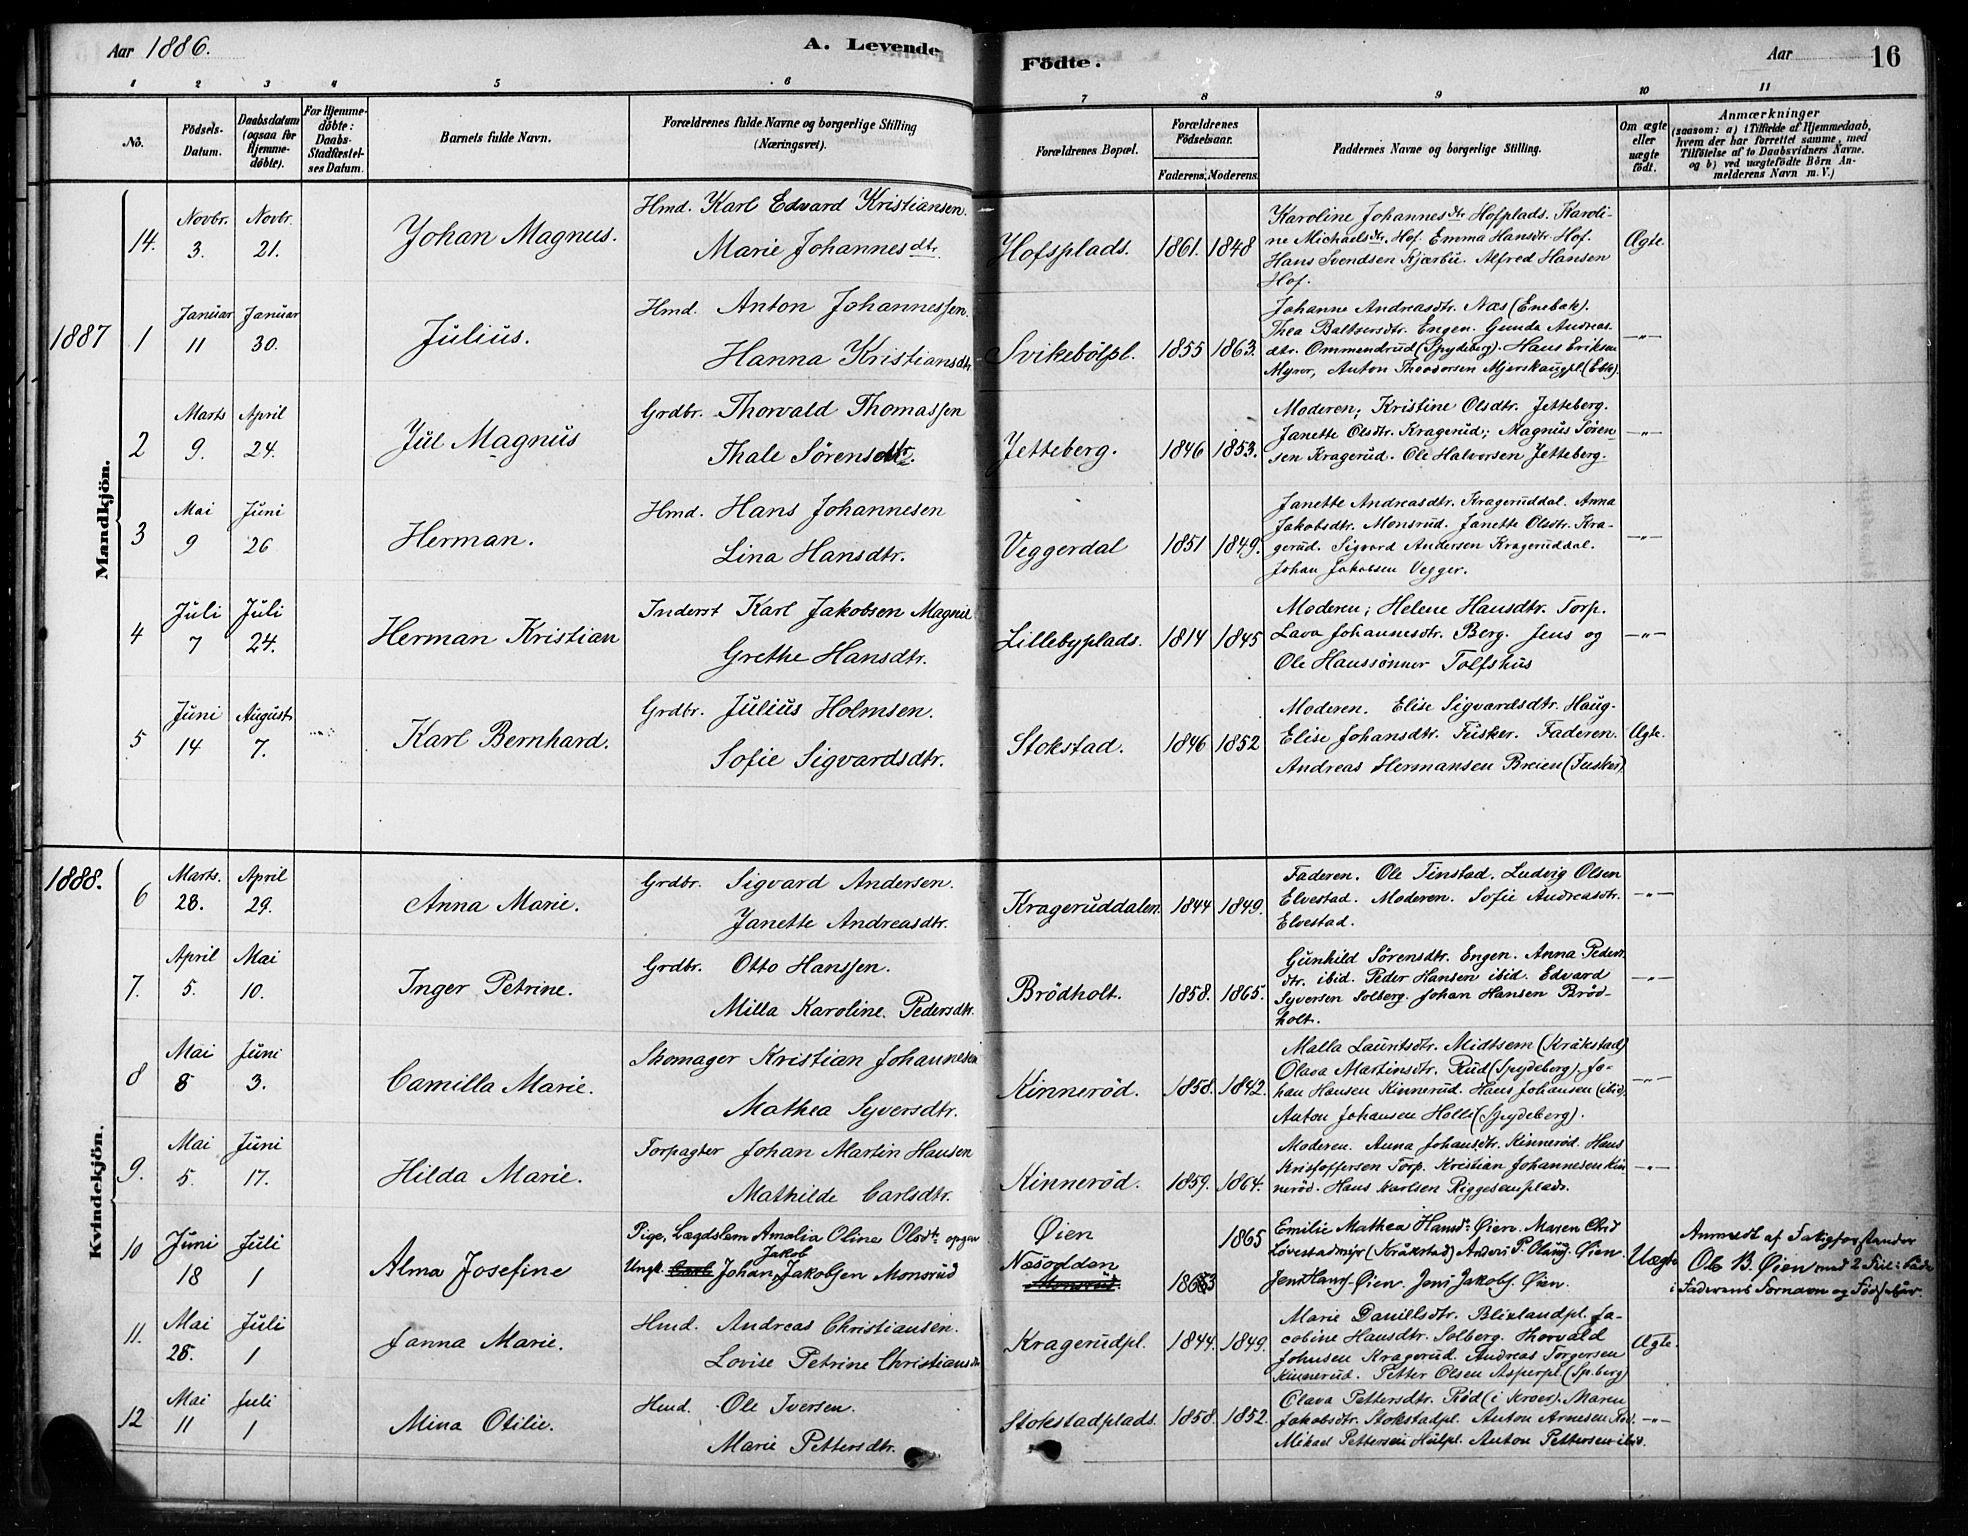 Aar 1886. A. Levende Födte. Aar 16
1 2 3 4 5 6 7 8 9 10 11
No. Födsels-Datum. Daabsdatum (ogsaa for Hjemme-döbte). For Hjemme-döbte: Daabs-Stadfæstel-ses Datum. Barnets fulde Navn. Forældrenes fulde Navne og borgerlige Stilling (Næringsvei). Forældrenes Bopæl. Forældrenes Födselsaar. Faderens. Moderens. Faddernes Navne og borgerlige Stilling. Om ægte eller uægte födt. Anmærkninger (saasom: a) i Tilfælde af Hjemmedaab, hvem der har forrettet samme, med Tilföielse af to Daabsvidners Navne. og b) ved uægtefödte Börn An-melderens Navn m. V.)
Mandkjön.
14. Novbr. 3. Novbr. 21. Johan Magnus.
Hmd. Karl Edvard Kristiansen.
Marie Johannesdtr.
Hofsplads. 1861. 1848
Karoline Johannesdtr. Hofplads. Karoli-
ne Michaelsdtr. Hof. Emma Hansdtr. Hof.
Hans Svendsen Kjærbü. Alfred Hansen
Hof.
Ægte.
1887
1 Januar 11 Januar 30. Julius.
Hmd. Anton Johannessen.
Hanna Kristiansdtr
Svikebölpl. 1855 1863.
Johanne Andreasdtr. Næs (Enebak).
Thea Baltsersdtr. Engen. Gunda Andreas-
dtr. Ommendrud (Spydeberg). Hans Eriksen
Myrer, Anton Theodorsen Mjerskaugpl (Ebk).
—„—
2 Marts 9. April 24. Jul Magnus
Grdbr. Thorvald Thomassen
Thale Sørensdtr.
Jetteberg. 1846 1853.
Moderen; Kristine Olsdtr. Jetteberg.
Janette Olsdtr. Kragerud; Magnus Søren-
sen Kragerud. Ole Halvorsen Jetteberg.
—„—
3 Mai 9 Juni 26 Herman.
Hmd. Hans Johannesen
Lina Hansdtr.
Veggerdal 1851 1849.
Janette Andreasdtr. Krageruddal. Anna
Jakobsdtr. Monsrud. Janette Olsdtr. Kra-
gerud. Sigvard Andersen Krageruddal.
Johan Jakobsen Vegger.
—„—
4 Juli 7 Juli 24. Herman Kristian
Inderst Karl Jakobsen Magnil
Grethe Hansdtr.
Lillebyplads. 1814 1845
Moderen; Helene Hansdtr. Torp.
Lava Johannesdtr. Berg. Jens og
Ole Hanssønner Tolfshus
—„—
5 Juni 14 August 7. Karl Bernhard.
Grdbr. Julius Holmsen.
Sofie Sigvardsdtr.
Stokstad. 1846 1852
Moderen. Elise Sigvardsdtr. Haug.
Elise Johansdtr. Fusker. Faderen.
Andreas Hermansen Breien (Fusker)
Ægte.
1888.
Kvindekjön.
6 Marts. 28. April 29. Anna Marie.
Grdbr. Sigvard Andersen.
Janette Andreasdtr.
Krageruddalen 1844 1849.
Faderen. Ole Tinstad. Ludvig Olsen
Elvestad. Moderen. Sofie Andreasdtr.
Elvestad.
—„—
7. April 5. Mai 10. Inger Petrine.
Grdbr. Otto Hanssen.
Milla Karoline Pedersdtr.
Brödholt. 1858. 1865.
Gunhild Sørensdtr. Engen. Anna Peders-
dtr. ibid. Peder Hansen ibid. Edvard
Syversen Solberg. Johan Hansen Bröd-
holt.
—„—
8 Mai 8 Juni 3. Camilla Marie.
Skomager Kristian Johannesen
Mathea Syversdtr.
Kinneröd. 1858. 1842.
Malla Lauritsdtr. Midtsem (Kråkstad)
Olava Martinsdtr. Rud (Spydeberg), Jo-
han Hansen Kinnerud. Hans Johansen (ibid).
Anton Johansen Holli (Spydeberg).
—„—
9. Mai 5. Juni 17. Hilda Marie.
Forpagter Johan Martin Hansen
Mathilde Carlsdtr.
Kinneröd. 1859. 1864.
Moderen. Anna Johansdtr. Kinneröd. Hans
Kristoffersen Torp. Kristian Johannesen Kin-
neröd. Hans Karlsen Riggesenplads.
—„—
10 Juni 18 Juli 1 Alma Josefine
Pige, Lægdslem Amalia Oline Olsdtr opgav
Jakob
Ungk. Carl Johan Jakobsen Monsrud
Øien 1865
Næsodden
Monsrud. 1863
Emilie Mathea Hansdr Øien. Maren Chrd
Løvestadmyr (Kråkstad) Anders P. Olaus Øien.
Jens Hans Øien. Jens Jakobs. Øien.
Uægte
Anmeldt af Fattigforstander
Ole B. Øien med 2 Feil: både
i Faderens Fornavn og Fødselsår.
11. Mai 28. Juli 1 Janna Marie.
Hmd. Andreas Christiansen.
Lovise Petrine Christiansdtr
Kragerudpl. 1844. 1849.
Marie Danielsdtr. Blixlandpl. Ja-
cobine Hansdtr. Solberg. Thorvald
Johnsen Kragerud. Andreas Torgersen
Kinnerud. Petter Olsen Asperpl (Sp.berg)
Ægte.
12 Mai 11 Juli 1 Mina Otilie.
Hmd. Ole Iversen.
Marie Pettersdtr.
Stokstadplads. 1858. 1852.
Olava Pettersdtr. Röd (i Kroer). Maren
Jakobsdtr. Stokstadpl. Anton Arnesen
Mikael Pettersen Anton Pettersen ibid.
—„—